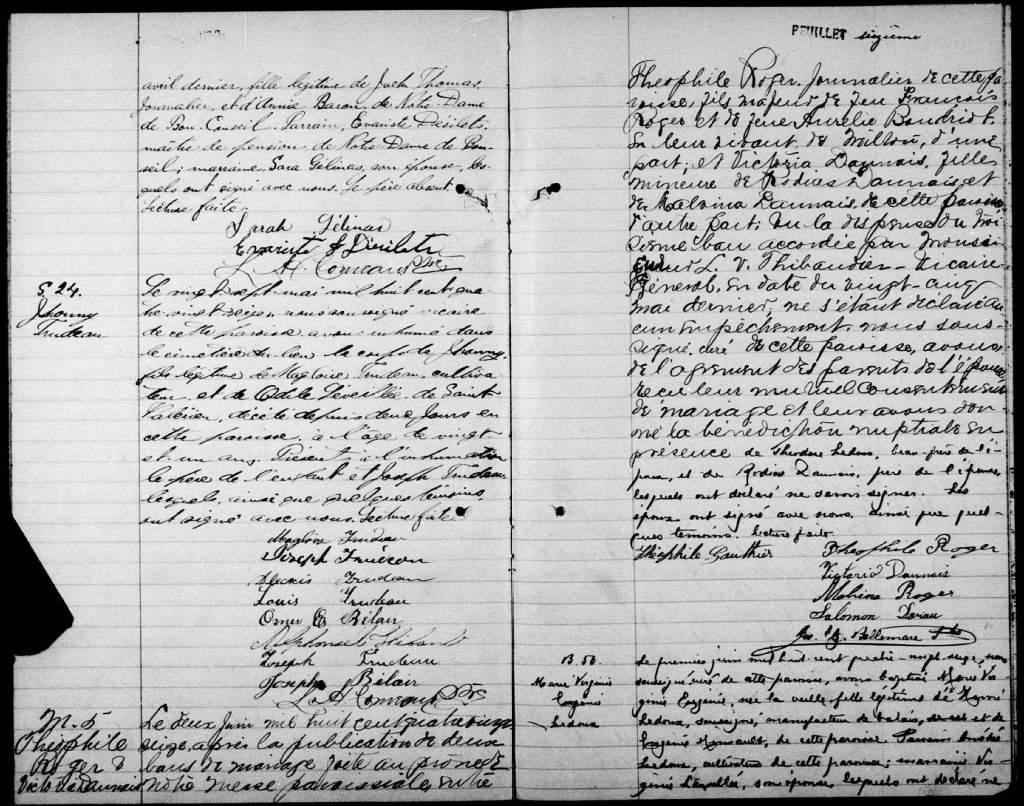 avril dernier, fille légitime de Jack Thomas,
journalier, et d'Annie Baron, de Notre-Dame
de Bon-Conseil. Parrain, Evariste Désilets,
maître de pension, de Notre-Dame de Bon-
seil; marraine, Sara Gélinas, son épouse, les-
quels ont signé avec nous. Le père absent.
Lecture faite.
Sarah Gélinas
Evariste Désilets
Comeau Ptre
S. 24.
Jhonny
Trudeau
Le vingt-sept mai mil huit cent qua-
tre-vingt-seize, nous soussigné vicaire
de cette paroisse avons inhumé dans
le cimetière du lieu le corps de Jhonny,
fils légitime de Magloire Trudeau, cultiva-
teur, et de Odile Léveillée, de Saint-
Valérien, décédé depuis deux jours en
cette paroisse, à l'âge de vingt-
et-un ans. Présents à l'inhumation
le père de l'enfant et Joseph Trudeau,
lesquels, ainsi que quelques témoins,
ont signé avec nous. Lecture faite.
Magloire Trudeau
Joseph Trudeau
Alexis Trudeau
Louis Trudeau
Omer Bélair
Alphonse
Joseph Trudeau
Joseph Bélair
Comeau Ptre
M. 5
Théophile
Roger &
Victoria Daunais
Le deux Juin mil huit cent quatre vingt
seize, après la publication de deux
bans de mariage faite au prône de
notre messe paroissiale, entre
FEUILLET sixième
Théophile Roger, Journalier de cette pa
roisse, fils majeur de feu François
Roger et de feue Aurélie Boudriot.
En leur vivant de Milton, d'une
part; et Victoria Daunais, fille
mineure de Rodias Daunais et
de Malvina Daunais de cette paroisse
d'autre part; Vu la dispense du troi
sième ban accordée par Monsei
gneur L. V. Thibaudier Vicaire
Général, en date du vingt-cinq
mai dernier, ne s'étant déclaré au
cun empêchement, nous sous-
signé, curé de cette paroisse, avons
de l'agrément des parents de l'épouse
reçu leur mutuel consentement
de mariage et leur avons don
né la bénédiction nuptiale en
présence de Théodore Ledoux, beau-père de l'é-
poux, et de Rodias Daunais, père de l'épouse,
lesquels ont déclaré ne savoir signer. Les
époux ont signé avec nous, ainsi que quel-
ques témoins. Lecture faite.
Théophile Gauthier Théophile Roger
Victoria Daunais
Malvina Roger
Salomon
Jos. Bellemare Ptre
B. 50.
Marie Virginie
Eugénie
Ledoux
Le premier juin mil huit cent quatre-vingt-seize, nous
soussigné curé de cette paroisse, avons baptisé Marie Vir-
ginie Eugénie, née la veille, fille légitime de
Ledoux, manufacturier de balais, et de
Eugénie de cette paroisse. Parrain
Ledoux, cultivateur de cette paroisse; marraine, Vir-
ginie son épouse, lesquels ont déclaré ne